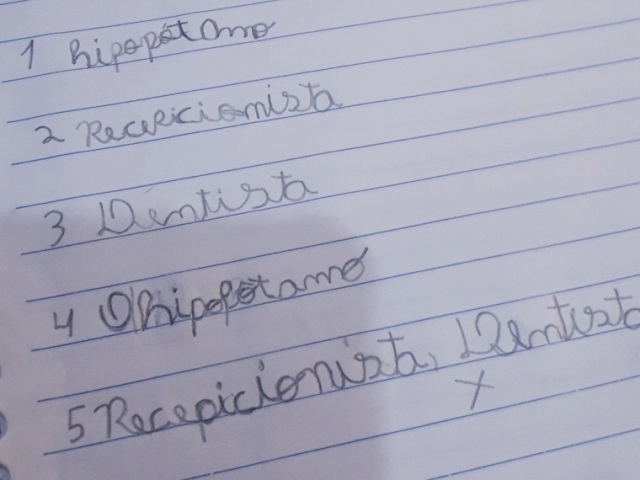 1 hipopótamo
2 Recepicionista
3 Dentista
4 O hipopótamo
5 Recepicionista, Dentista
X